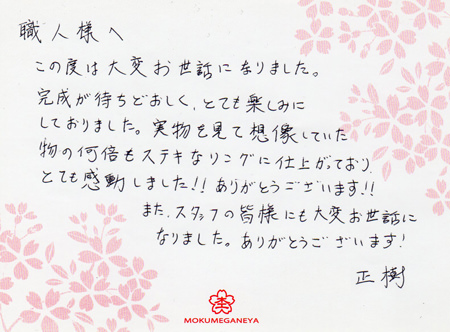 職人様へ
この度は大変お世話になりました。
完成が待ちどおしく、とても楽しみに
しておりました。実物を見て想像していた
物の何倍もステキなリングに仕上がっており、
とても感動しました!!ありがとうございます!!
また、スタッフの皆様にも大変お世話に
なりました。ありがとうございます!
正樹
MOKUMEGANEYA